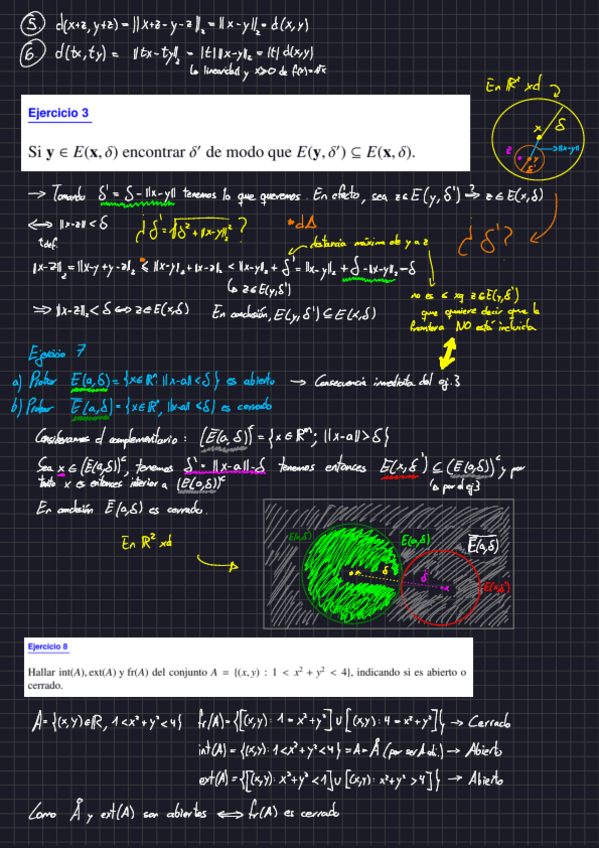 ⑤ d(x+z, y+z) = ||x+z-y-z||₂ = ||x-y||₂ = d(x,y)
⑥ d(tx, ty) = ||tx-ty||₂ = |t| ||x-y||₂ = |t| d(x,y)
En ℝ² xd
Ejercicio 3
Si y ∈ E(x, δ) encontrar δ′ de modo que E(y, δ′) ⊆ E(x, δ).
x δ
z y δ' ||x-y||
→ Tomando δ' = δ - ||x-y|| tenemos lo que queremos. En efecto, sea z∈E(y, δ') ⇒? z∈E(x,δ)
⟺ ||x-z|| < δ
↑ def.
¿ δ' = √(δ² + ||x-y||₂²) ?
*dΔ
distancia máxima de y a z
¿δ'?
||x-z||₂ = ||x-y+y-z||₂ ≤ ||x-y||₂ + ||y-z||₂ < ||x-y||₂ + δ' = ||x-y||₂ + δ - ||x-y||₂ = δ
↳ z∈E(y,δ')
no es ≤ xq z∈E(y,δ')
que quiere decir que la
frontera NO está incluida
⇒ ||x-z||₂ < δ ⟺ z∈E(x,δ) En conclusión, E(y,δ') ⊆ E(x,δ)
Ejercicio 7
a) Probar E(a,δ) = {x∈ℝⁿ, ||x-a|| < δ} es abierto → Consecuencia inmediata del ej. 3
b) Probar E̅(a,δ) = {x∈ℝⁿ, ||x-a|| ≤ δ} es cerrado
Consideramos el complementario: (E̅(a,δ))ᶜ = {x∈ℝⁿ; ||x-a|| > δ}
Sea x∈(E̅(a,δ))ᶜ, tenemos δ' = ||x-a|| - δ tenemos entonces E(x,δ') ⊆ (E̅(a,δ))ᶜ, por
tanto x es entonces interior a (E̅(a,δ))ᶜ
↳ por el ej 3
En conclusión E̅(a,δ) es cerrado.
En ℝ² xd
E(a,δ) E(a,δ) E̅(a,δ)
a δ δ' x
Ejercicio 8
Hallar int(A), ext(A) y fr(A) del conjunto A = {(x, y) : 1 < x² + y² < 4}, indicando si es abierto o
cerrado.
A = {(x,y)∈ℝ, 1<x²+y²<4} fr(A) = {[(x,y): 1=x²+y²] ∪ [(x,y): 4=x²+y²]} → Cerrado
int(A) = {(x,y): 1<x²+y²<4} = A = Å (por ser A ab.) → Abierto
ext(A) = {[(x,y): x²+y²<1] ∪ [(x,y): x²+y²>4]} → Abierto
Como Å y ext(A) son abiertos ⟺ fr(A) es cerrado